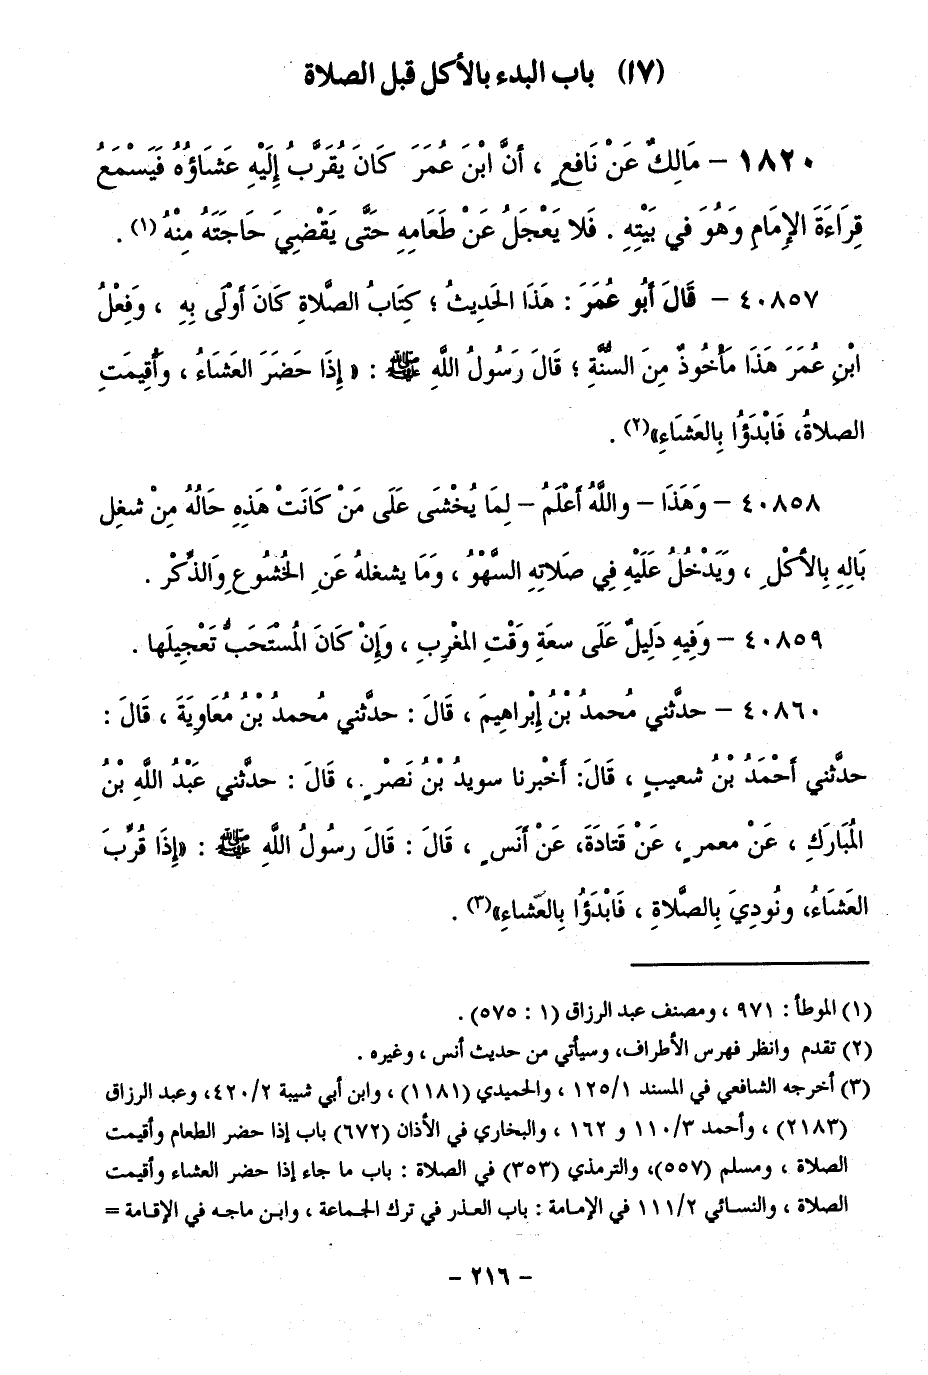 (١٧) باب البدء بالأكل قبل الصلاة
١٨٢٠ – مَالِكٌ عَنْ نَافِعٍ ، أَنَّ ابْنَ عُمَرَ كَانَ يُقَرَّبُ إِلَيْهِ عَشَاؤُهُ فَيَسْمَعُ
قِرَاءَةَ الإِمَامِ وَهُوَ في بَيْتِهِ . فَلا يَعْجَلُ عَنْ طَعَامِهِ حَتَّى يَقْضِيَ حَاجَتَهُ مِنْهُ (١) .
٤٠٨٥٧ – قَالَ أَبُو عُمَرَ : هَذَا الحَدِيثُ ؛ كِتَابُ الصَّلاةِ كَانَ أَوْلَى بِهِ ، وَفِعْلُ
ابْنِ عُمَرَ هَذَا مَأْخُوذٌ مِنَ السُّنَّةِ ؛ قَالَ رَسُولُ اللَّهِ ﷺ : « إِذَا حَضَرَ العَشَاءُ ، وَأُقِيمَتِ
الصلاةُ، فَابْدَؤُا بِالعَشَاءِ»(٢) .
٤٠٨٥٨ – وَهَذَا – واللَّهُ أَعْلَمُ – لِمَا يُخْشَى عَلَى مَنْ كَانَتْ هَذِهِ حَالُهُ مِنْ شغلِ
بَالِهِ بِالأَكْلِ ، وَيَدْخُلُ عَلَيْهِ فِي صَلاتِهِ السَّهْوُ ، وَمَا يشغلهُ عَنِ الخُشُوعِ وَالذِّكْرِ .
٤٠٨٥٩ – وَفِيهِ دَلِيلٌ عَلَى سعَةِ وَقْتِ المغْرِبِ ، وَإِنْ كَانَ المُسْتَحَبُّ تَعْجِيلَها .
٤٠٨٦٠ – حدَّثني مُحمدُ بْنُ إِبْراهِيمَ ، قَالَ : حدَّثني مُحمدُ بْنُ مُعَاوِيَةَ ، قَالَ :
حدَّثني أَحْمَدُ بْنُ شعيبٍ ، قَالَ: أَخْبرنا سويدُ بْنُ نَصْرٍ ، قَالَ : حدَّثني عَبْدُ اللَّهِ بْنُ
المُبَارَكِ ، عَنْ معمرٍ ، عَنْ قتادَةَ، عَنْ أَنَسٍ ، قَالَ : قَالَ رسُولُ اللَّهِ ﷺ : «إِذَا قُرِّبَ
العَشَاءُ، ونُودِيَ بِالصَّلاةِ ، فَابْدَؤُا بِالعَشاءِ»(٣) .
(١) الموطأ : ٩٧١ ، ومصنف عبد الرزاق (١ : ٥٧٥) .
(٢) تقدم وانظر فهرس الأطراف، وسيأتي من حديث أنس ، وغيره .
(٣) أخرجه الشافعي في المسند ١٢٥/١ ، والحميدي (١١٨١) ، وابن أبي شيبة ٤٢٠/٢، وعبد الرزاق
(٢١٨٣) ، وأحمد ١١٠/٣ و ١٦٢ ، والبخاري في الأذان (٦٧٢) باب إذا حضر الطعام وأقيمت
الصلاة ، ومسلم (٥٥٧)، والترمذي (٣٥٣) في الصلاة : باب ما جاء إذا حضر العشاء وأقيمت
الصلاة ، والنسائي ١١١/٢ في الإمامة : باب العذر في ترك الجماعة ، وابن ماجه في الإقامة =
– ٢١٦ –